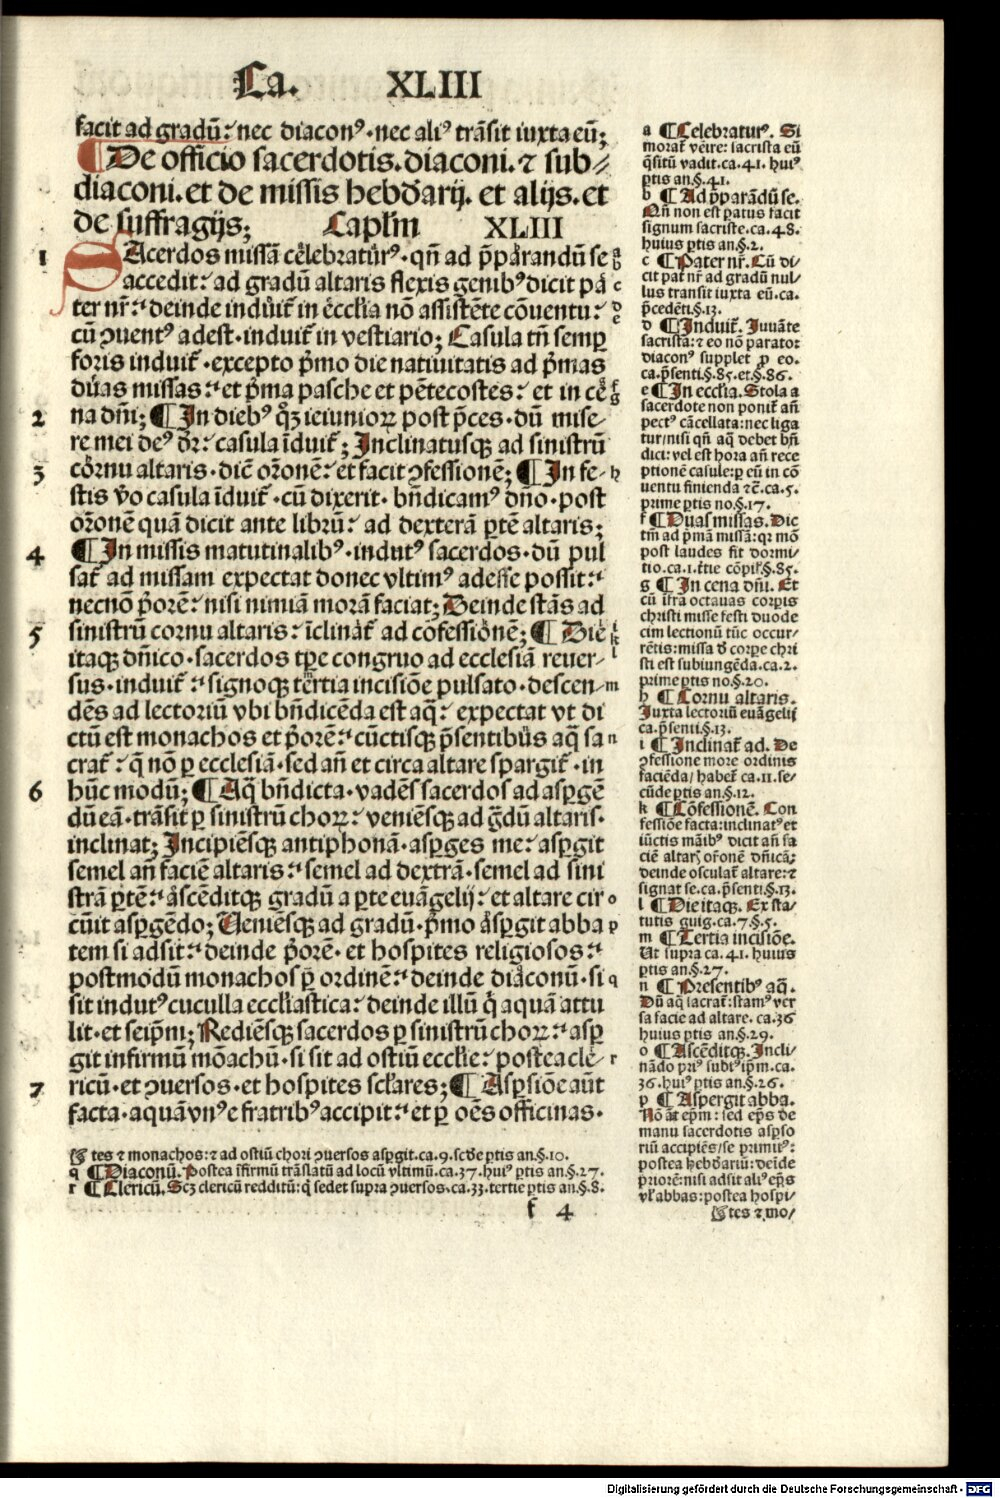 Ca. XLIII
facit ad gradū: nec diaconꝰ·nec aliꝰ trāsit iuxta eū;
¶ De officio sacerdotis. diaconi. ⁊ sub⸗
diaconi. et de missis hebdārij. et alijs. et
de suffragijs; Caplm XLIII
1 SAcerdos missā celebraturꝰ· qn̄ ad p̄parandū se a b
accedit: ad gradū altaris flexis genibꝰ dicit pa c
ter nr̄: deinde induit̄ in eccl'ia nō assistēte cōuentu: d e
cū ꝯuentꝰ adest· induit̄ in vestiario; Casula tn̄ semp̱
foris induit̄· excepto p̄mo die natiuitatis ad p̄mas
duas missas: et p̄ma pasche et pētecostes: et in ce f g
2 na dn̄i; ¶ In diebꝰ qꝫ ieiuniorꝝ post p̄ces· dū mise-
re mei deꝰ dr̄: casula īduit̄; Inclinatusqꝫ ad sinistrū
3 cornu altaris· dic̄ or̄onē: et facit ꝯfessionē; ¶ In fe- h
stis v̄o casula īduit̄· cū dixerit· bn̄dicamꝰ dn̄o· post
or̄onē quā dicit ante librū: ad dexterā p̱tē altaris;
4 ¶ In missis matutinalibꝰ· indutꝰ sacerdos· dū pul
sat̄ ad missam expectat donec vltimꝰ adesse possit:
necnō p̄orē: nisi nimiā morā faciat; Deinde stās ad
5 sinistrū cornu altaris: īclinat̄ ad cōfessionē; ¶ Die i k
itaqꝫ dn̄ico· sacerdos tp̄e congruo ad ecclesiā reuer- l
sus· induit̄: signoqꝫ tertia incisiōe pulsato· descen- m
dēs ad lectoriū vbi bn̄dicēda est aq̄: expectat vt di
ctū est monachos et p̄orē: cūctisqꝫ p̄sentibus aq̄ sa n
crat̄: q̄ nō p̱ ecclesiā· sed an̄ et circa altare sp̱argit̄· in
6 hūc modū; ¶ Aq̄ bn̄dicta· vadēs sacerdos ad asp̱gē
dū eā· trāsit p̱ sinistrū chorꝝ: veniēsqꝫ ad g̊dū altaris·
inclinat; Incipiēsqꝫ antiphonā· asp̱ges me: asp̱git
semel an̄ faciē altaris: semel ad dextrā· semel ad sini
strā p̱tē: ascēditqꝫ gradū a p̱te euāgelij: et altare cir o
cūit asp̱gēdo; Ueniēsqꝫ ad gradū· p̄mo asp̱git abba p
tem si adsit: deinde p̄orē· et hospites religiosos:
postmodū monachos p̱ ordinē: deinde diaconū· si q
sit indutꝰ cuculla eccl'iastica: deinde illū q̄ aquā attu
lit· et seip̄m; Rediēsqꝫ sacerdos p̱ sinistrū chorꝝ: asp̱
git infirmū mōachū· si sit ad ostiū eccl'ie: postea cle- r
7 ricū· et ꝯuersos· et hospites scl'ares; ¶ Asp̱siōe aūt
facta· aquā vnꝰ e fratribꝰ accipit: et p̱ oēs officinas·
tes ⁊ monachos: ⁊ ad ostiū chori ꝯuersos asp̱git. ca. 9. sc̄de p̱tis an. §. 10.
q ¶ Diaconū. Postea īfirmū trāslatū ad locū vltimū. ca. 37. huiꝰ p̱tis an. §. 27.
r ¶ Clericū. Scꝫ clericū redditū: q̄ sedet supra ꝯuersos. ca. 33. tertie p̱tis an. §. 8.
f 4
a ¶ Celebraturꝰ. Si
morat̄ venire: sacrista eū
q̄situ vadit. ca. 41. huiꝰ
p̱tis an. §. 41.
b ¶ Ad p̄parādū se.
Qn̄ non est p̱atus facit
signum sacriste. ca. 48.
huius p̱tis an. §. 2.
c ¶ Pater nr̄. Cū di/
cit pat̄ nr̄ ad gradū nul/
lus transit iuxta eū. ca.
p̄cedēti. §. 13.
d ¶ Induit̄. Iuuāte
sacrista: ⁊ eo nō parato:
diaconꝰ supplet p̱ eo.
ca. p̄senti. §. 85. et. §. 86.
e ¶ In eccl'ia. Stola a
sacerdote non ponit̄ an̄
pectꝰ cācellata: nec liga
tur/ nisi qn̄ aq̄ debet bn̄
dici: vel est hora an̄ rece
ptionē casule: p̱ eū in cō
uentu finienda ⁊c̄. ca. 5.
prime p̱tis no. §. 17.
f ¶ Duas missas. Dic
tm̄ ad p̄mā missā: qꝛ mō
post laudes fit dormi/
tio. ca. 1. t̄tie cōpil'. §. 85.
g ¶ In cena dn̄i. Et
cū īfra octauas corp̱is
christi misse festi duode
cim lectionū tūc occur/
rētis: missa d̄ corp̱e chri
sti est subiungēda. ca. 2.
prime p̱tis no. §. 20.
h ¶ Cornu altaris.
Iuxta lectoriū euāgelij
ca. p̄senti. §. 13.
i ¶ Inclinat̄ ad. De
ꝯfessione more ordinis
faciēda/ habet̄ ca. 11. se/
cūde p̱tis an. §. 12.
k ¶ Cōfessionē. Con
fessiōe facta: inclinatꝰ et
iūctis māibꝰ dicit an̄ fa
ciē altarꝭ or̄onē dn̄icā:
deinde osculat̄ altare: ⁊
signat se. ca. p̄senti. §. 13.
l ¶ Die itaqꝫ. Ex sta/
tutis guig. ca. 7. §. 5.
m ¶ Tertia incisiōe.
Ut supra ca. 41. huius
p̱tis an. §. 27.
n ¶ Presentibꝰ aq̄.
Dū aq̄ sacrat̄: stamꝰ ver
sa facie ad altare. ca. 36
huius p̱tis an. §. 29.
o ¶ Ascēditqꝫ. Incli/
nādo priꝰ subtꝰ ip̄m. ca.
36. huiꝰ p̱tis an. §. 26.
p ¶ Aspergit abba.
Nō āt ep̄m: sed ep̄s de
manu sacerdotis asp̱so
riū accipiēs/ se primitꝰ:
postea hebdāriū: deīde
priorē: nisi adsit aliꝰ ep̄s
vl' abbas: postea hospi/
tes ⁊ mo/
Digitalisierung gefördert durch die Deutsche Forschungsgemeinschaft - DFG